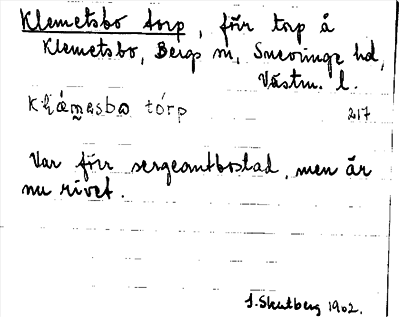 Klemetsbo torp, förr torp å
Klemetsbo, Bergs sn, Snevringe hd,
Västm. l.
torp 217
Var förr sergeantbostad, men är
nu rivet.
J. Skutberg 1902.